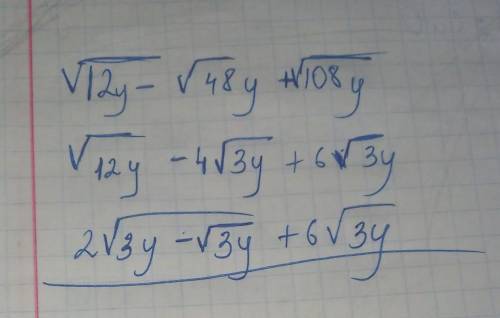 √12y - √48y + √108y
√12y - 4√3y + 6√3y
2√3y - √3y + 6√3y